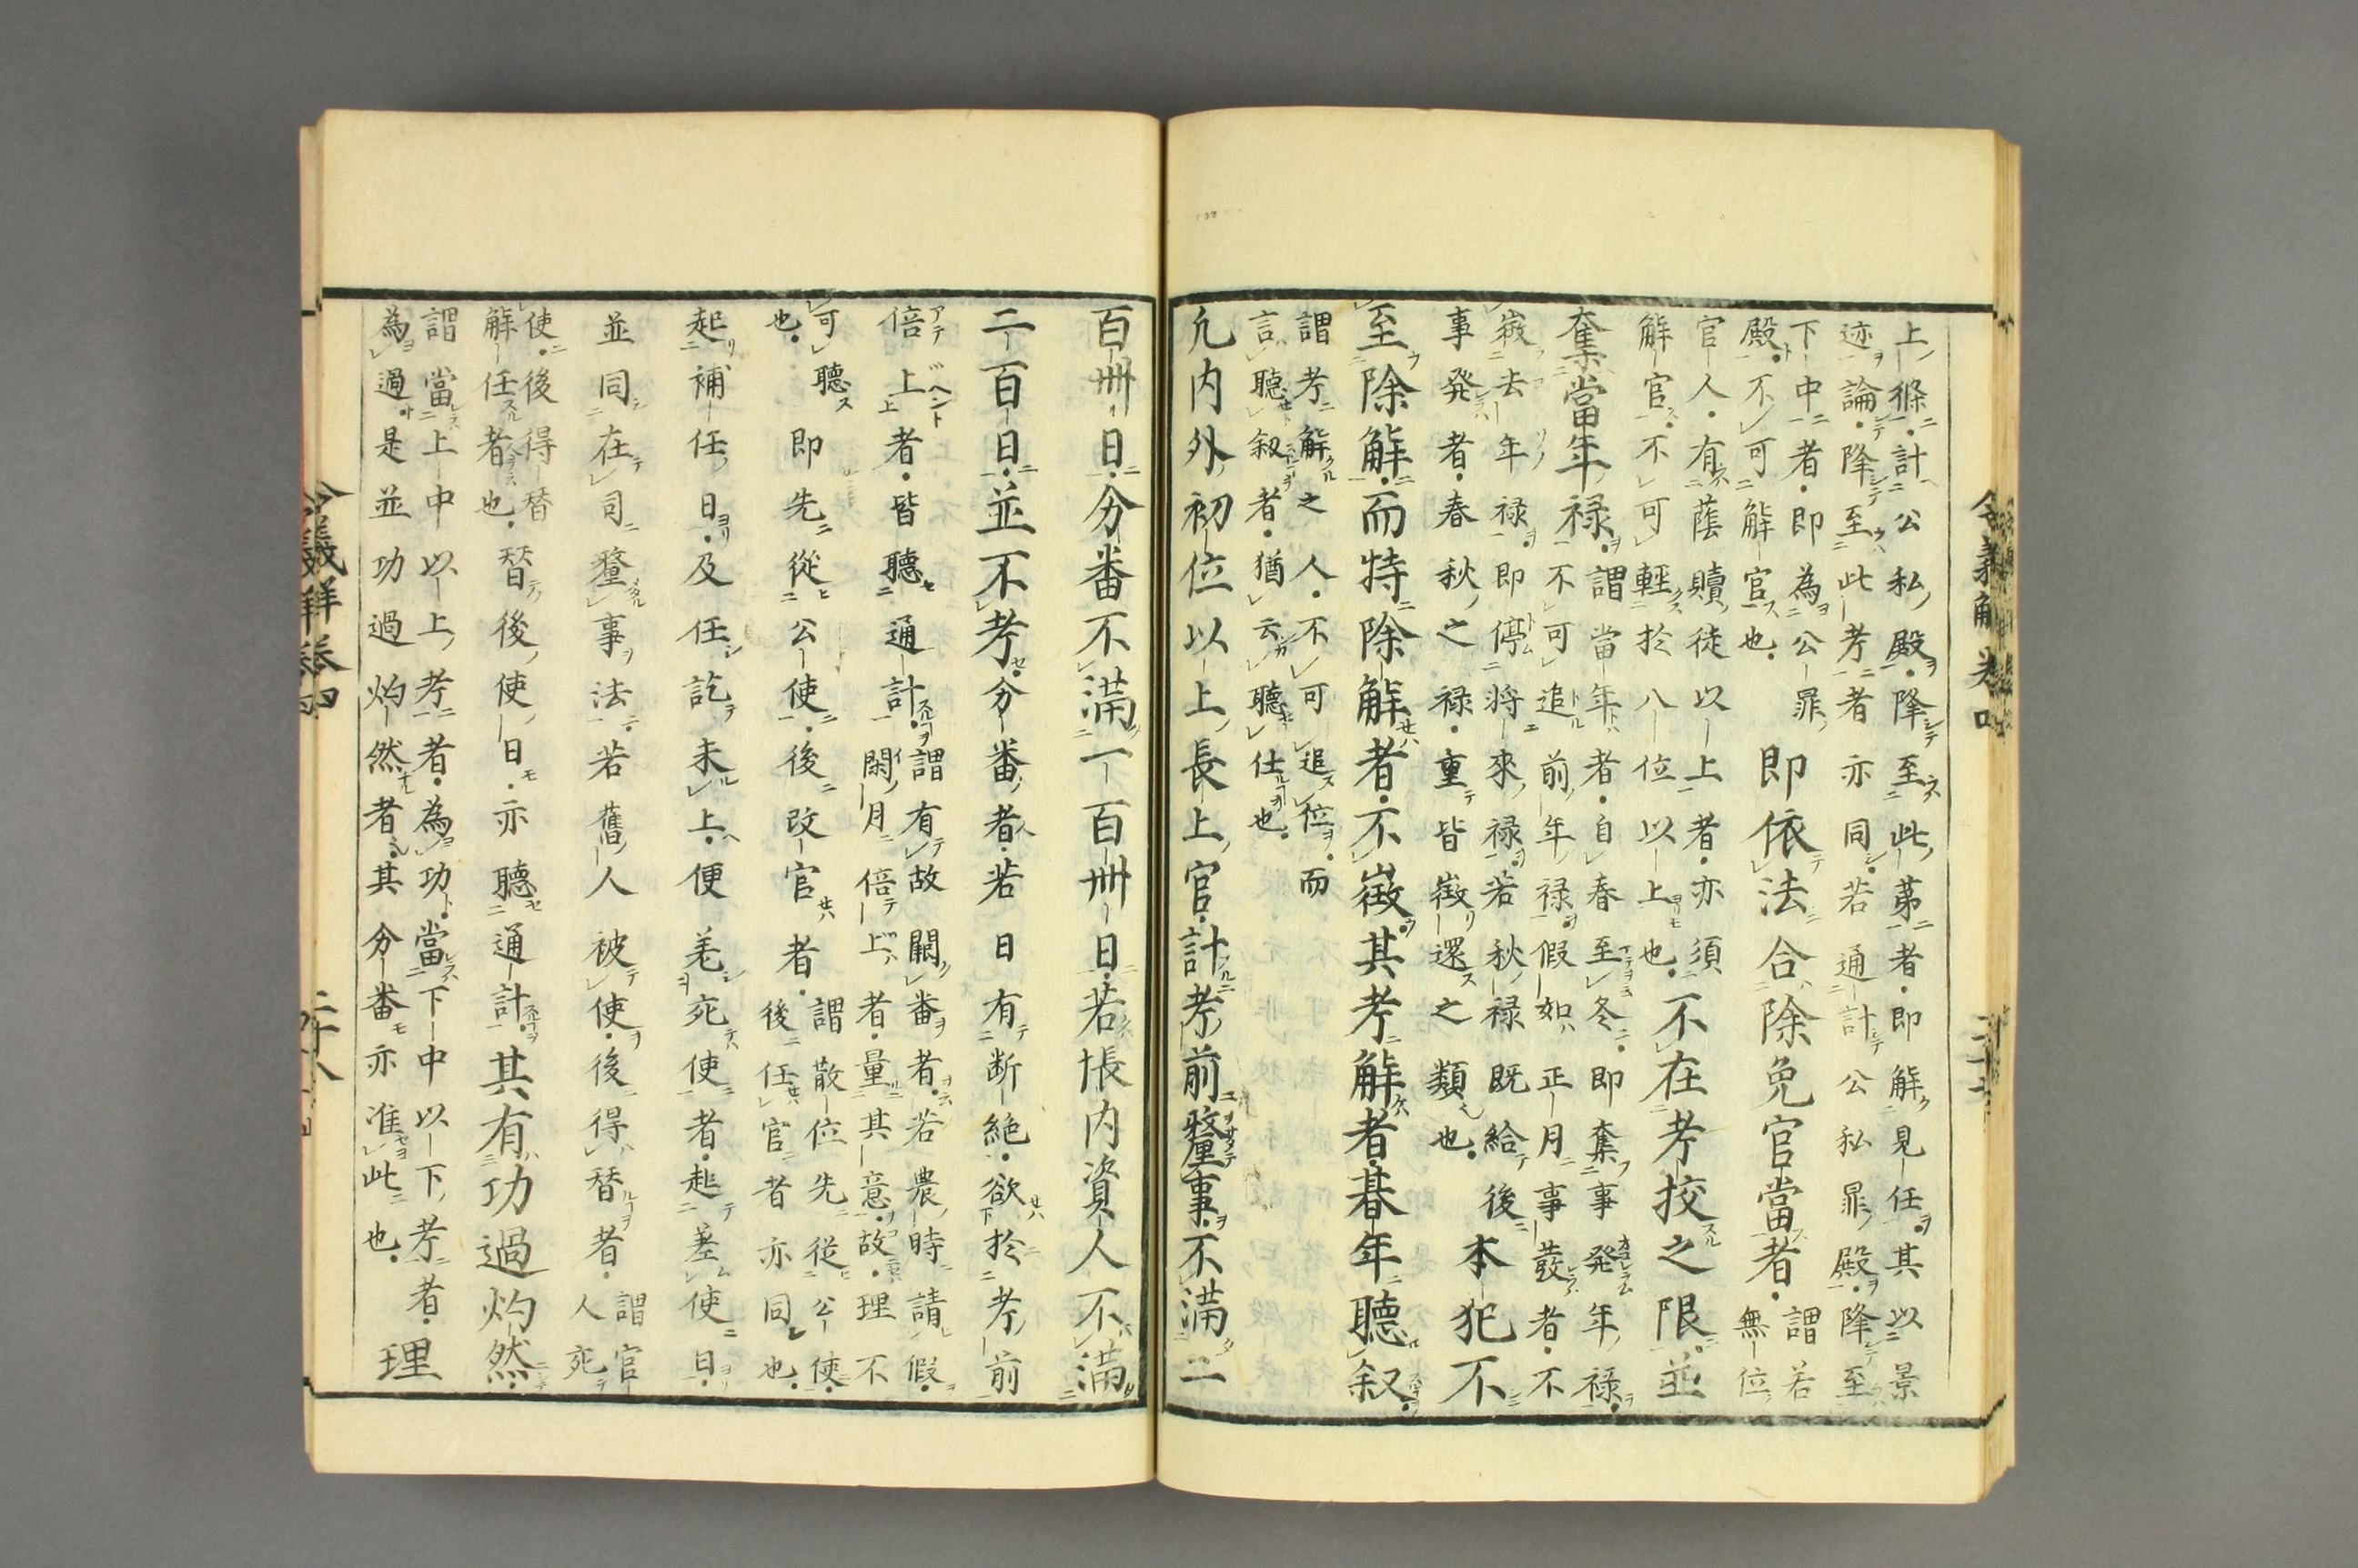 上條計公私殿降至此第者即解見任其以景
迹論降至此考者亦同若通計公私罪殿降至
下中者即為公罪
殿不可解官也
即依法合除免官當者
謂若
無位
官人有蔭贖徒以上者亦須
解官不可輕於八位以上也
不在考挍之限並
奪當年禄
謂當年者自春至冬即奪事発年禄
不可追前年禄假如正月事發者不
徴去年禄即停将來禄若秋禄既給後
事発者春秋之禄重皆徴還之類也
本犯不
至除解而特除解者不徴其考解者朞年聽叙
謂考解之人不可追位而
言聽叙者猶云聽仕也
凢内外初位以上長上官計考前釐事不滿二
百卌日分番不滿一百卌日若帳内資人不滿
二百日並不考分番者若日有断絶欲於考前
倍上者皆聽通計
謂有故闕番者若農時請假
閑月倍上者量其意故理不
可聽
也
即先從公使後改官者
謂散位先從公使
後任官者亦同也
起補任日及任訖未上便差死使者起差使日
並同在司釐事法若舊人被使後得替者
謂官
人死
使後得替
解任者也
替後使日亦聽通計其有功過灼然
謂當上中以上考者為功當下中以下考者
為過是並功過灼然者其分番亦准此也
理
令義解卷四
二十八